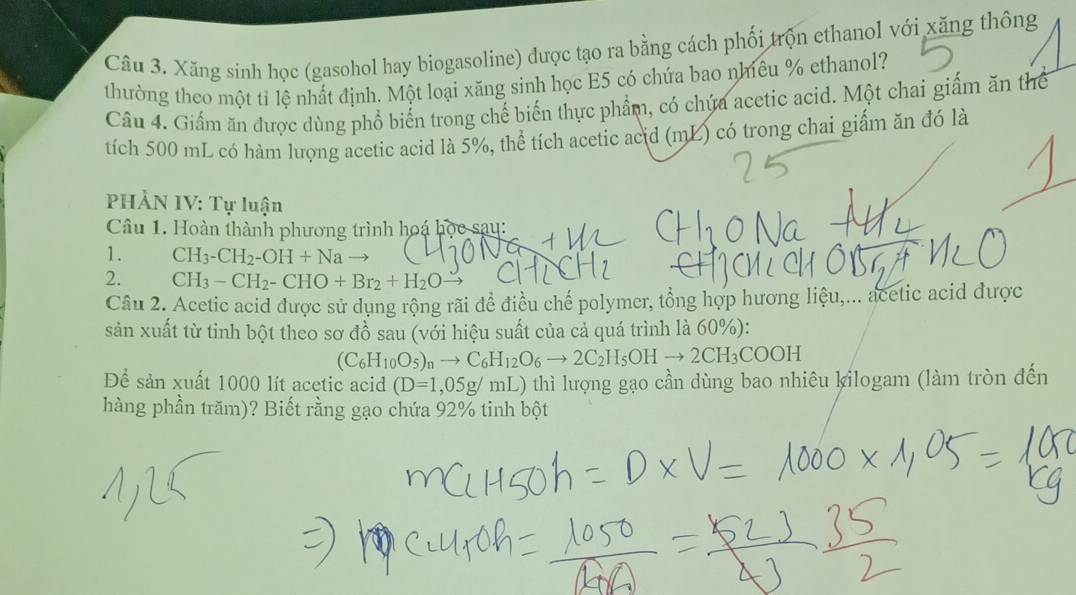 Câu 3. Xăng sinh học (gasohol hay biogasoline) được tạo ra bằng cách phối trộn ethanol với xăng thông
thường theo một tỉ lệ nhất định. Một loại xăng sinh học E5 có chứa bao nhiêu % ethanol?
5
1
Câu 4. Giấm ăn được dùng phổ biến trong chế biến thực phẩm, có chứa acetic acid. Một chai giấm ăn thể
tích 500 mL có hàm lượng acetic acid là 5%, thể tích acetic acid (mL) có trong chai giấm ăn đó là
25
1
PHẦN IV: Tự luận
Câu 1. Hoàn thành phương trình hoá học sau:
1. CH₃-CH₂-OH + Na →
2. CH₃ – CH₂- CHO + Br₂ + H₂O→
CH3ONa + H2
CH2CH2
CH3ONa
H2O
Câu 2. Acetic acid được sử dụng rộng rãi để điều chế polymer, tổng hợp hương liệu,... acetic acid được
sản xuất từ tinh bột theo sơ đồ sau (với hiệu suất của cả quá trình là 60%):
(C₆H₁₀O₅)ₙ → C₆H₁₂O₆ → 2C₂H₅OH → 2CH₃COOH
Để sản xuất 1000 lít acetic acid (D=1,05g/ mL) thì lượng gạo cần dùng bao nhiêu kilogam (làm tròn đến
hàng phần trăm)? Biết rằng gạo chứa 92% tinh bột
1,25
= D × V = 1000 × 1,05 =
kg
=> = 1050 = 35/2